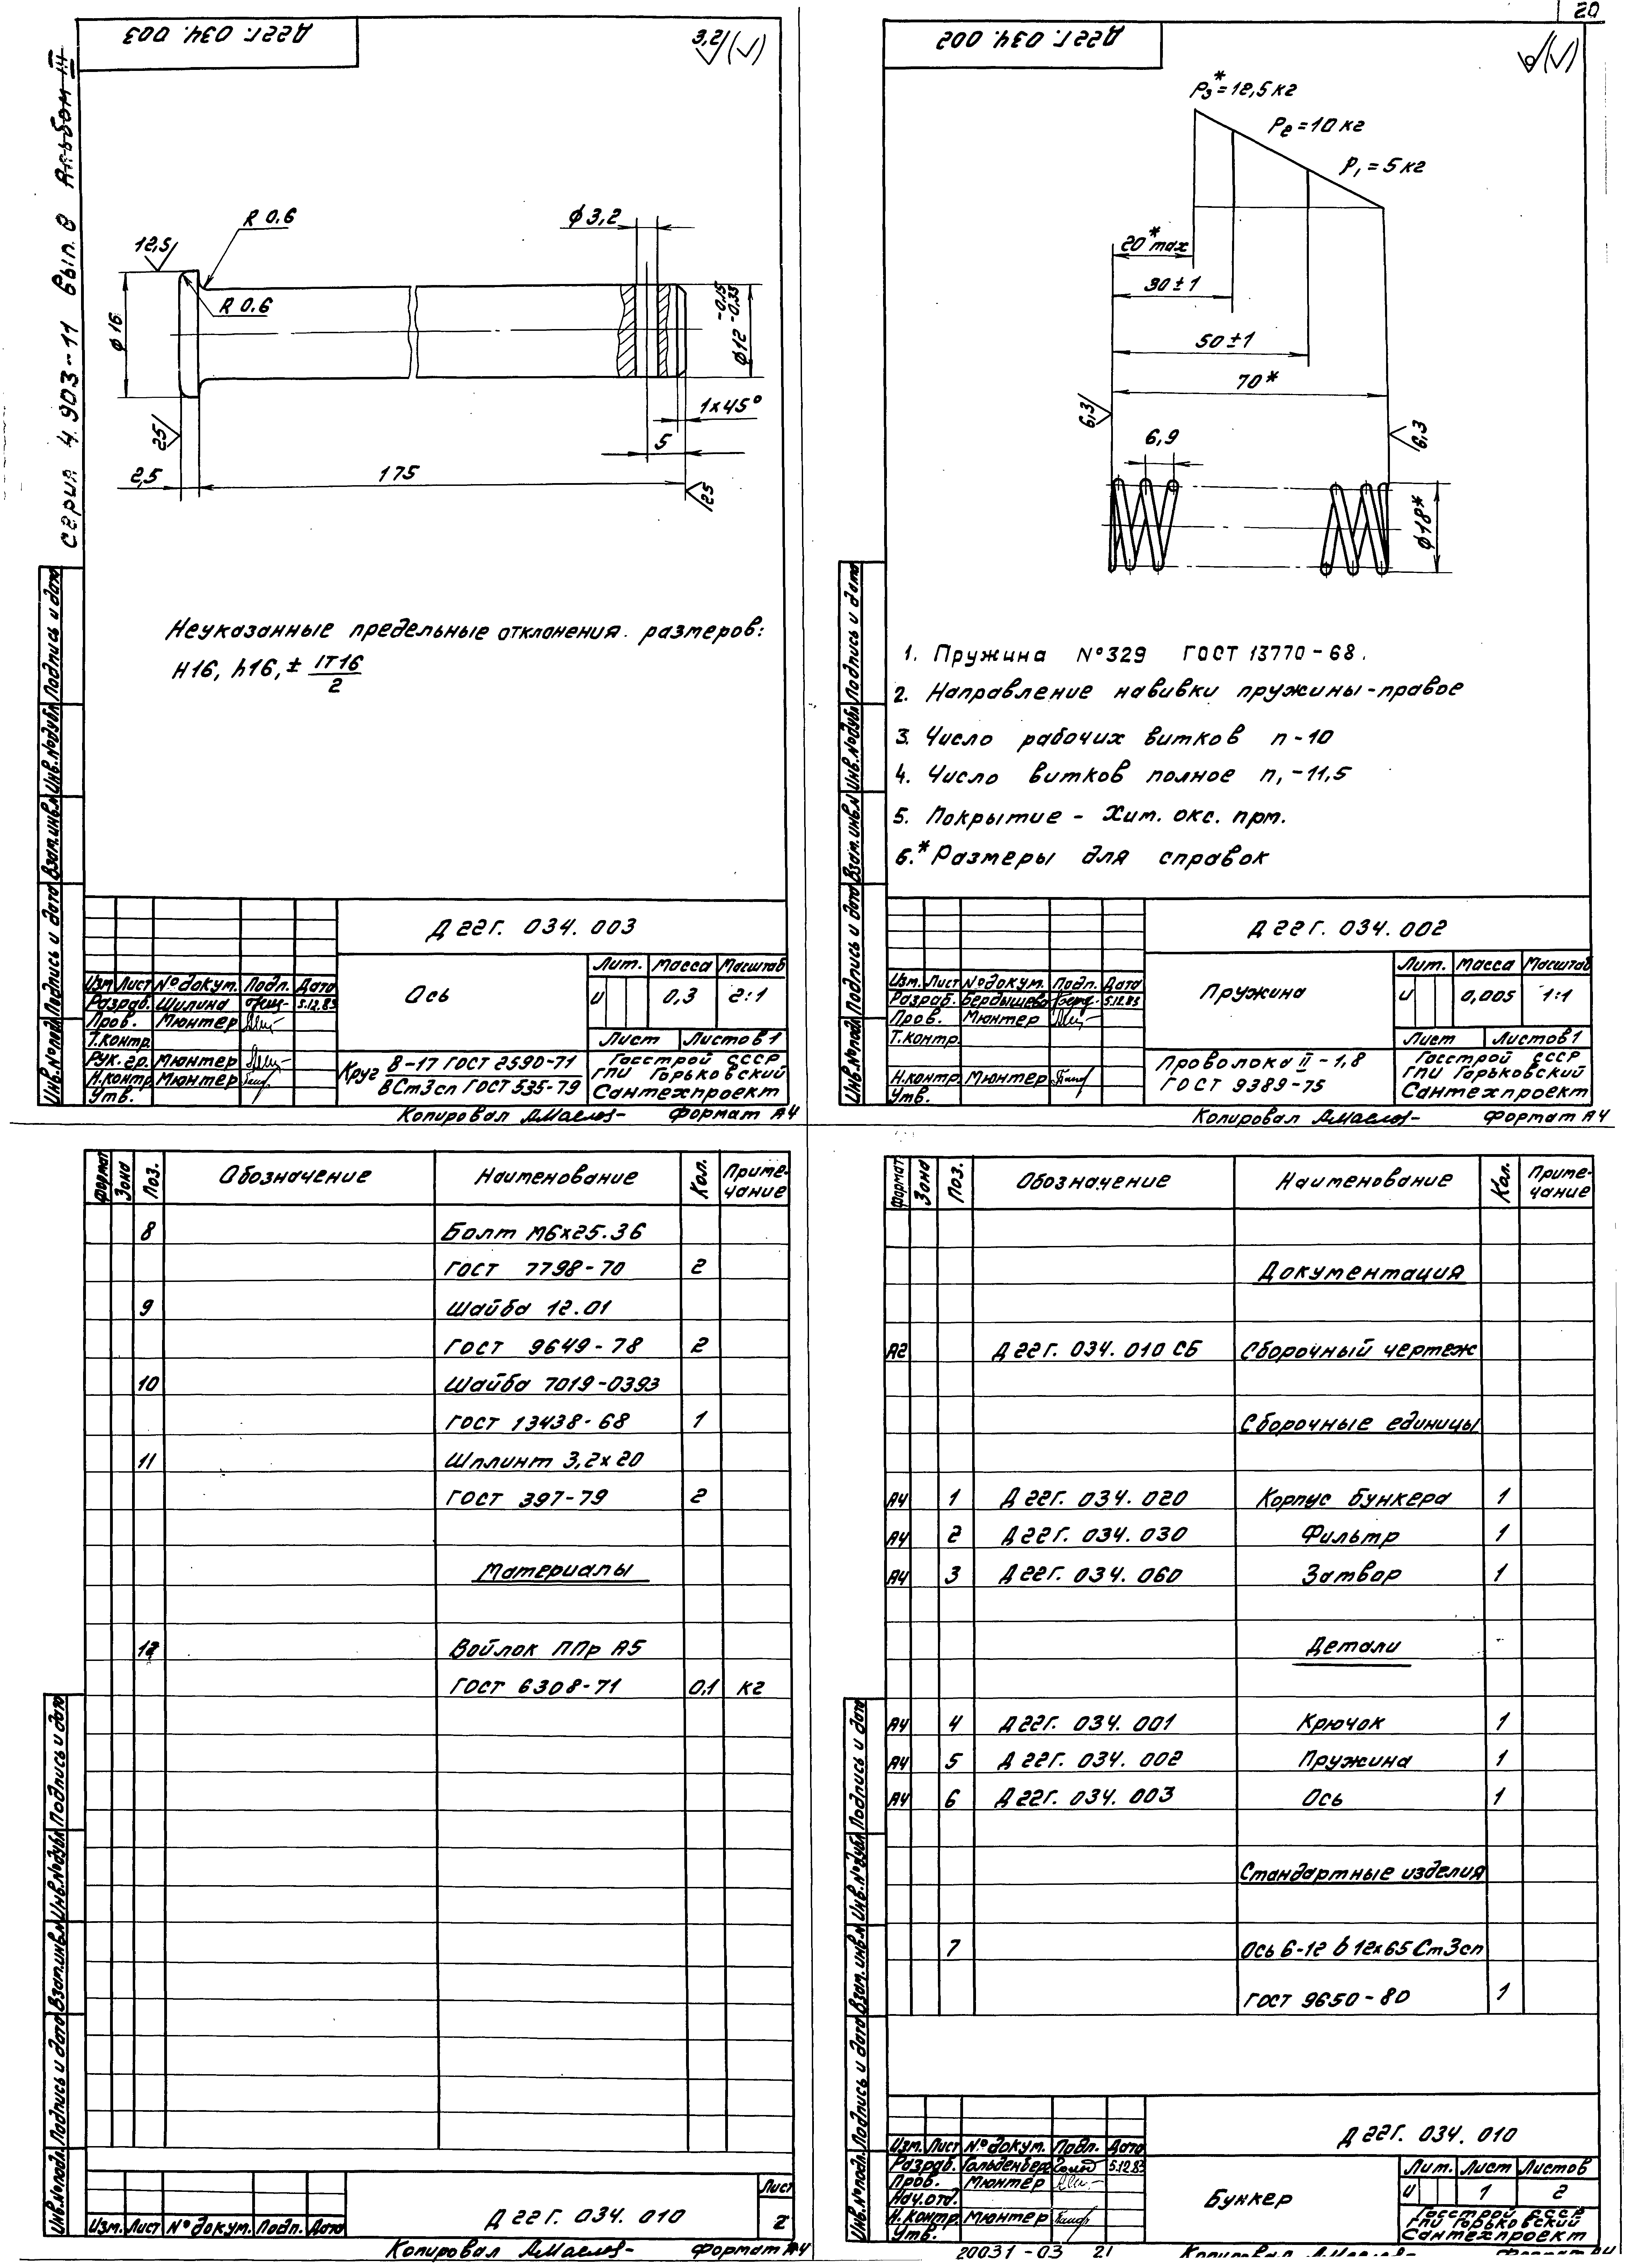 20
Д22Г. 034. 003
3,2/(√)
Серия 4.903-11 Вып. 8 Альбом III
R 0.6
φ3,2
12,5
R 0.6
φ16
φ12 -0,15 -0,33
1×45°
25
5
2,5
175
25
Неуказанные предельные отклонения размеров:
H16, h16, ± IT16/2
Д22Г. 034. 003
Лит. Масса Масштаб
Изм. Лист № докум. Подп. Дата
Разраб. Шилина 5.12.83
Ось
и 0,3 2:1
Пров. Мюнтер
Т.контр.
Лист Листов 1
Рук. гр. Мюнтер
Н.контр. Мюнтер
Утв.
Круг В-17 ГОСТ 2590-71 / ВСт3сп ГОСТ 535-79
Госстрой СССР
ГПИ Горьковский
Сантехпроект
Копировал Формат А4
Инв.№подл. Подпись и дата Взам.инв.№ Инв.№дубл. Подпись и дата
Д22Г. 034. 002
(√)
P3*=12,5кг
P2=10кг
P1=5кг
20* max
30±1
50±1
70*
6,3
6,3
6,9
φ18*
1. Пружина №329 ГОСТ 13770-68.
2. Направление навивки пружины-правое
3. Число рабочих витков n-10
4. Число витков полное n1-11,5
5. Покрытие - Хим. окс. прм.
6.* Размеры для справок
Д22Г. 034. 002
Лит. Масса Масштаб
Изм. Лист № докум. Подп. Дата
Разраб. Бердышева 5.12.83
Пружина
и 0,005 1:1
Пров. Мюнтер
Т.контр.
Лист Листов 1
Н.контр. Мюнтер
Утв.
Проволока II - 1,8
ГОСТ 9389-75
Госстрой СССР
ГПИ Горьковский
Сантехпроект
Копировал Формат А4
Инв.№подл. Подпись и дата Взам.инв.№ Инв.№дубл. Подпись и дата
Формат Зона Поз. Обозначение Наименование Кол. Примечание
8 Болт М6×25.36
ГОСТ 7798-70 2
9 Шайба 12.01
ГОСТ 9649-78 2
10 Шайба 7019-0393
ГОСТ 13438-68 1
11 Шплинт 3,2×20
ГОСТ 397-79 2
Материалы
12 Войлок ППр А5
ГОСТ 6308-71 0,1 кг
Инв.№подл. Подпись и дата Взам.инв.№ Инв.№дубл. Подпись и дата
Изм. Лист № докум. Подп. Дата
Д22Г. 034. 010
Лист
2
Копировал Формат А4
Формат Зона Поз. Обозначение Наименование Кол. Примечание
Документация
А2 Д22Г. 034. 010 СБ Сборочный чертеж
Сборочные единицы
А4 1 Д22Г. 034. 020 Корпус бункера 1
А4 2 Д22Г. 034. 030 Фильтр 1
А4 3 Д22Г. 034. 060 Затвор 1
Детали
А4 4 Д22Г. 034. 001 Крючок 1
А4 5 Д22Г. 034. 002 Пружина 1
А4 6 Д22Г. 034. 003 Ось 1
Стандартные изделия
7 Ось 6-12 b 12×65 Ст3сп
ГОСТ 9650-80 1
Инв.№подл. Подпись и дата Взам.инв.№ Инв.№дубл. Подпись и дата
Д22Г. 034. 010
Изм. Лист № докум. Подп. Дата
Разраб. Гольденберг 5.12.83
Пров. Мюнтер
Нач.отд.
Н.контр. Мюнтер
Утв.
Бункер
Лит. Лист Листов
и 1 2
Госстрой СССР
ГПИ Горьковский
Сантехпроект
20031-03 21
Копировал Формат А4